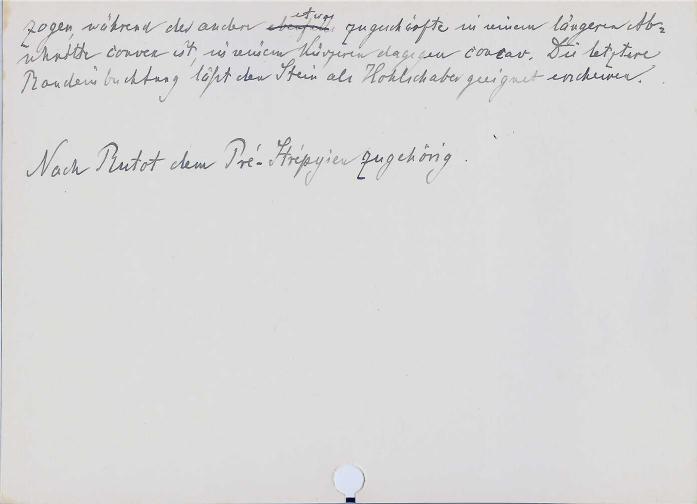 zogen, während der andere etwas zugeschärfte in einem längeren Ab=
schnitte convex ist, in einem kürzeren dagegen concav. Die letztere
Randeinbuchtung läßt den Stein als Hohlschaber geeignet erscheinen.
Nach Rutot dem Pré-Strépyien zugehörig.